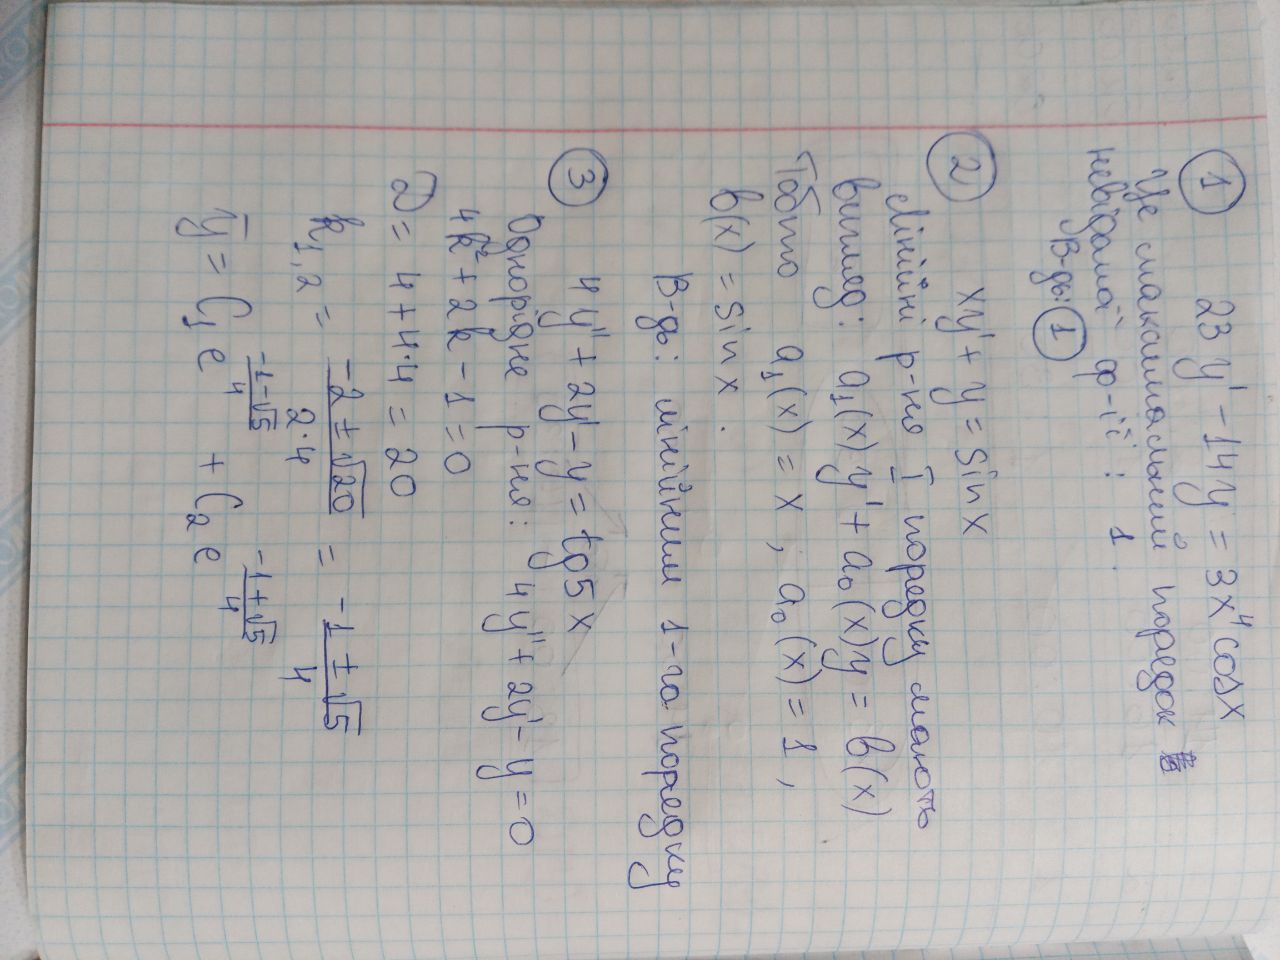 1 23y' - 14y = 3x⁴ cosx
Це максимальний порядок
невідомої ф-ії : 1 .
В-дь: 1
2 xy' + y = sinx
Лінійні р-ня I порядку мають
вигляд: a₁(x)y' + a₀(x)y = b(x)
Тобто a₁(x) = x ; a₀(x) = 1 ,
b(x) = sinx .
В-дь: лінійним 1-го порядку
3 4y'' + 2y' - y = tg5x
Однорідне р-ня: 4y'' + 2y' - y = 0
4k² + 2k - 1 = 0
D = 4 + 4·4 = 20
k₁,₂ = (-2 ± √20)/(2·4) = (-1 ± √5)/4
y̅ = C₁ e^((-1-√5)/4) + C₂ e^((-1+√5)/4)